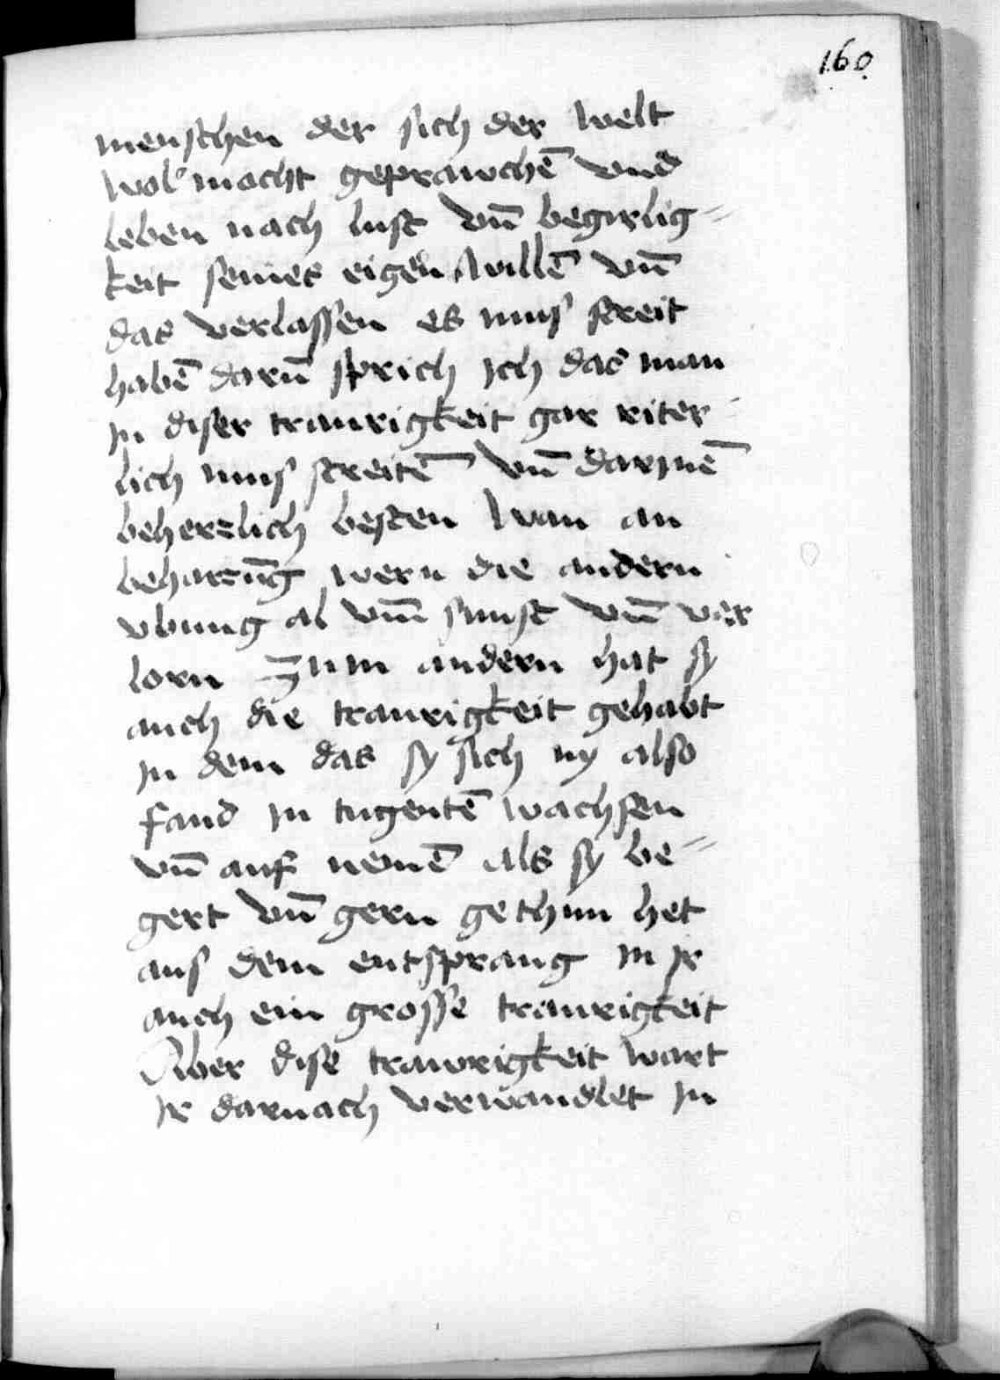 160.
menschen der sich der welt
wol mocht geprauchē vnd
leben nach lust vn̄ begirlig=
keit seines eigen willē vn̄
das verlassen es mus streit
habē darū sprich Ich das man
In diser traurigkeit gar riter=
lich mus streitē vn̄ darInē
beherzlich besten wan an
beharrūg wern die andern
vbung al vm̄ sunst vn̄ ver
lorn Zum andern hat sy
auch die traurigkeit gehabt
In dem das sy sich ny also
fand In tugentē wachsen
vn̄ auf nemē als sy be=
gert vn̄ gern gethun het
aus dem entsprang In Ir
auch ein grosse traurigkeit
Aber dise traurigkeit wart
Ir darnach verwandlet In